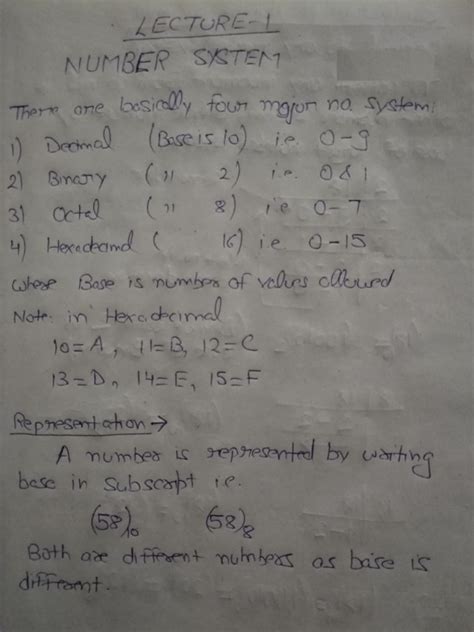 LECTURE-1
NUMBER SYSTEM
There are basically four major no. system:
1) Decimal (Base is 10) i.e. 0-9
2) Binary ( " 2) i.e. 0 & 1
3) Octal ( " 8) i.e 0-7
4) Hexadecimal ( 16) i.e 0-15
where Base is number of values allowed
Note: in Hexadecimal
10=A, 11=B, 12=C
13=D, 14=E, 15=F
Representation →
A number is represented by writing
base in subscript i.e.
(58)10 (58)8
Both are different numbers as base is
different.